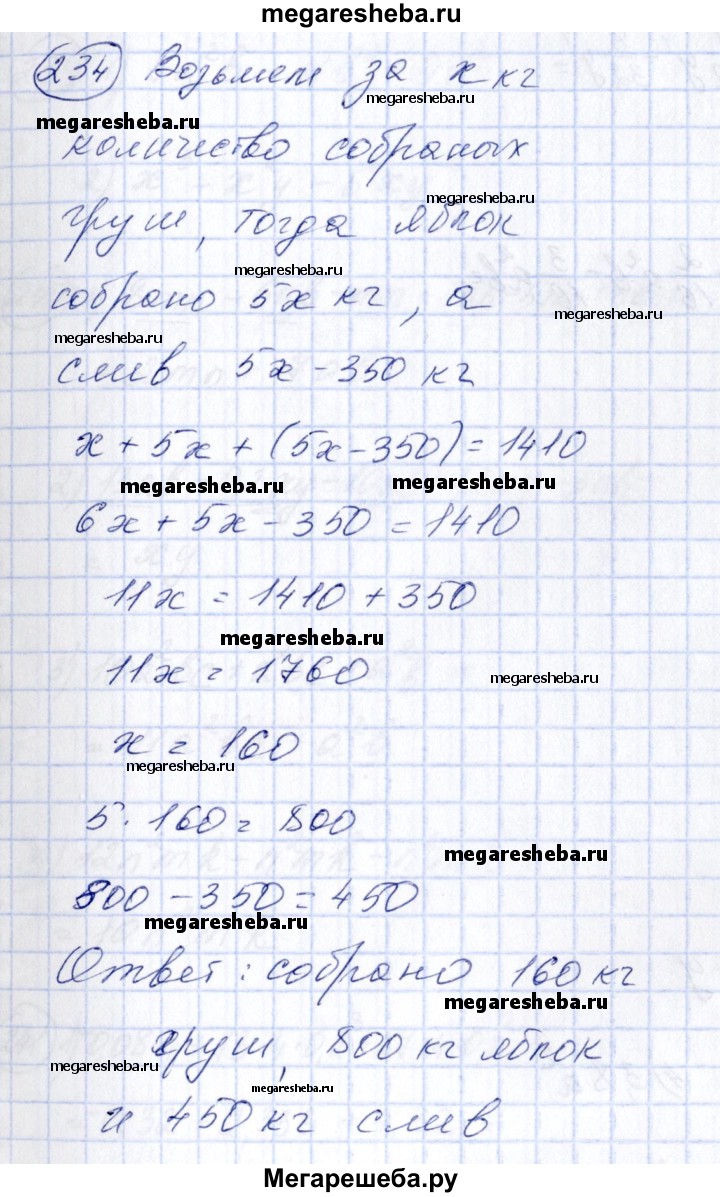 megaresheba.ru
234 Возьмем за x кг
megaresheba.ru
megaresheba.ru
количество собраных
megaresheba.ru
груш, тогда яблок
megaresheba.ru
собрано 5x кг, а
megaresheba.ru
megaresheba.ru
слив 5x - 350 кг
x + 5x + (5x - 350) = 1410
megaresheba.ru
megaresheba.ru
6x + 5x - 350 = 1410
11x = 1410 + 350
megaresheba.ru
11x = 1760
megaresheba.ru
x = 160
megaresheba.ru
5 · 160 = 800
megaresheba.ru
800 - 350 = 450
megaresheba.ru
Ответ: собрано 160 кг
megaresheba.ru
груш, 800 кг яблок
megaresheba.ru
megaresheba.ru
и 450 кг слив
Мегарешеба.ру